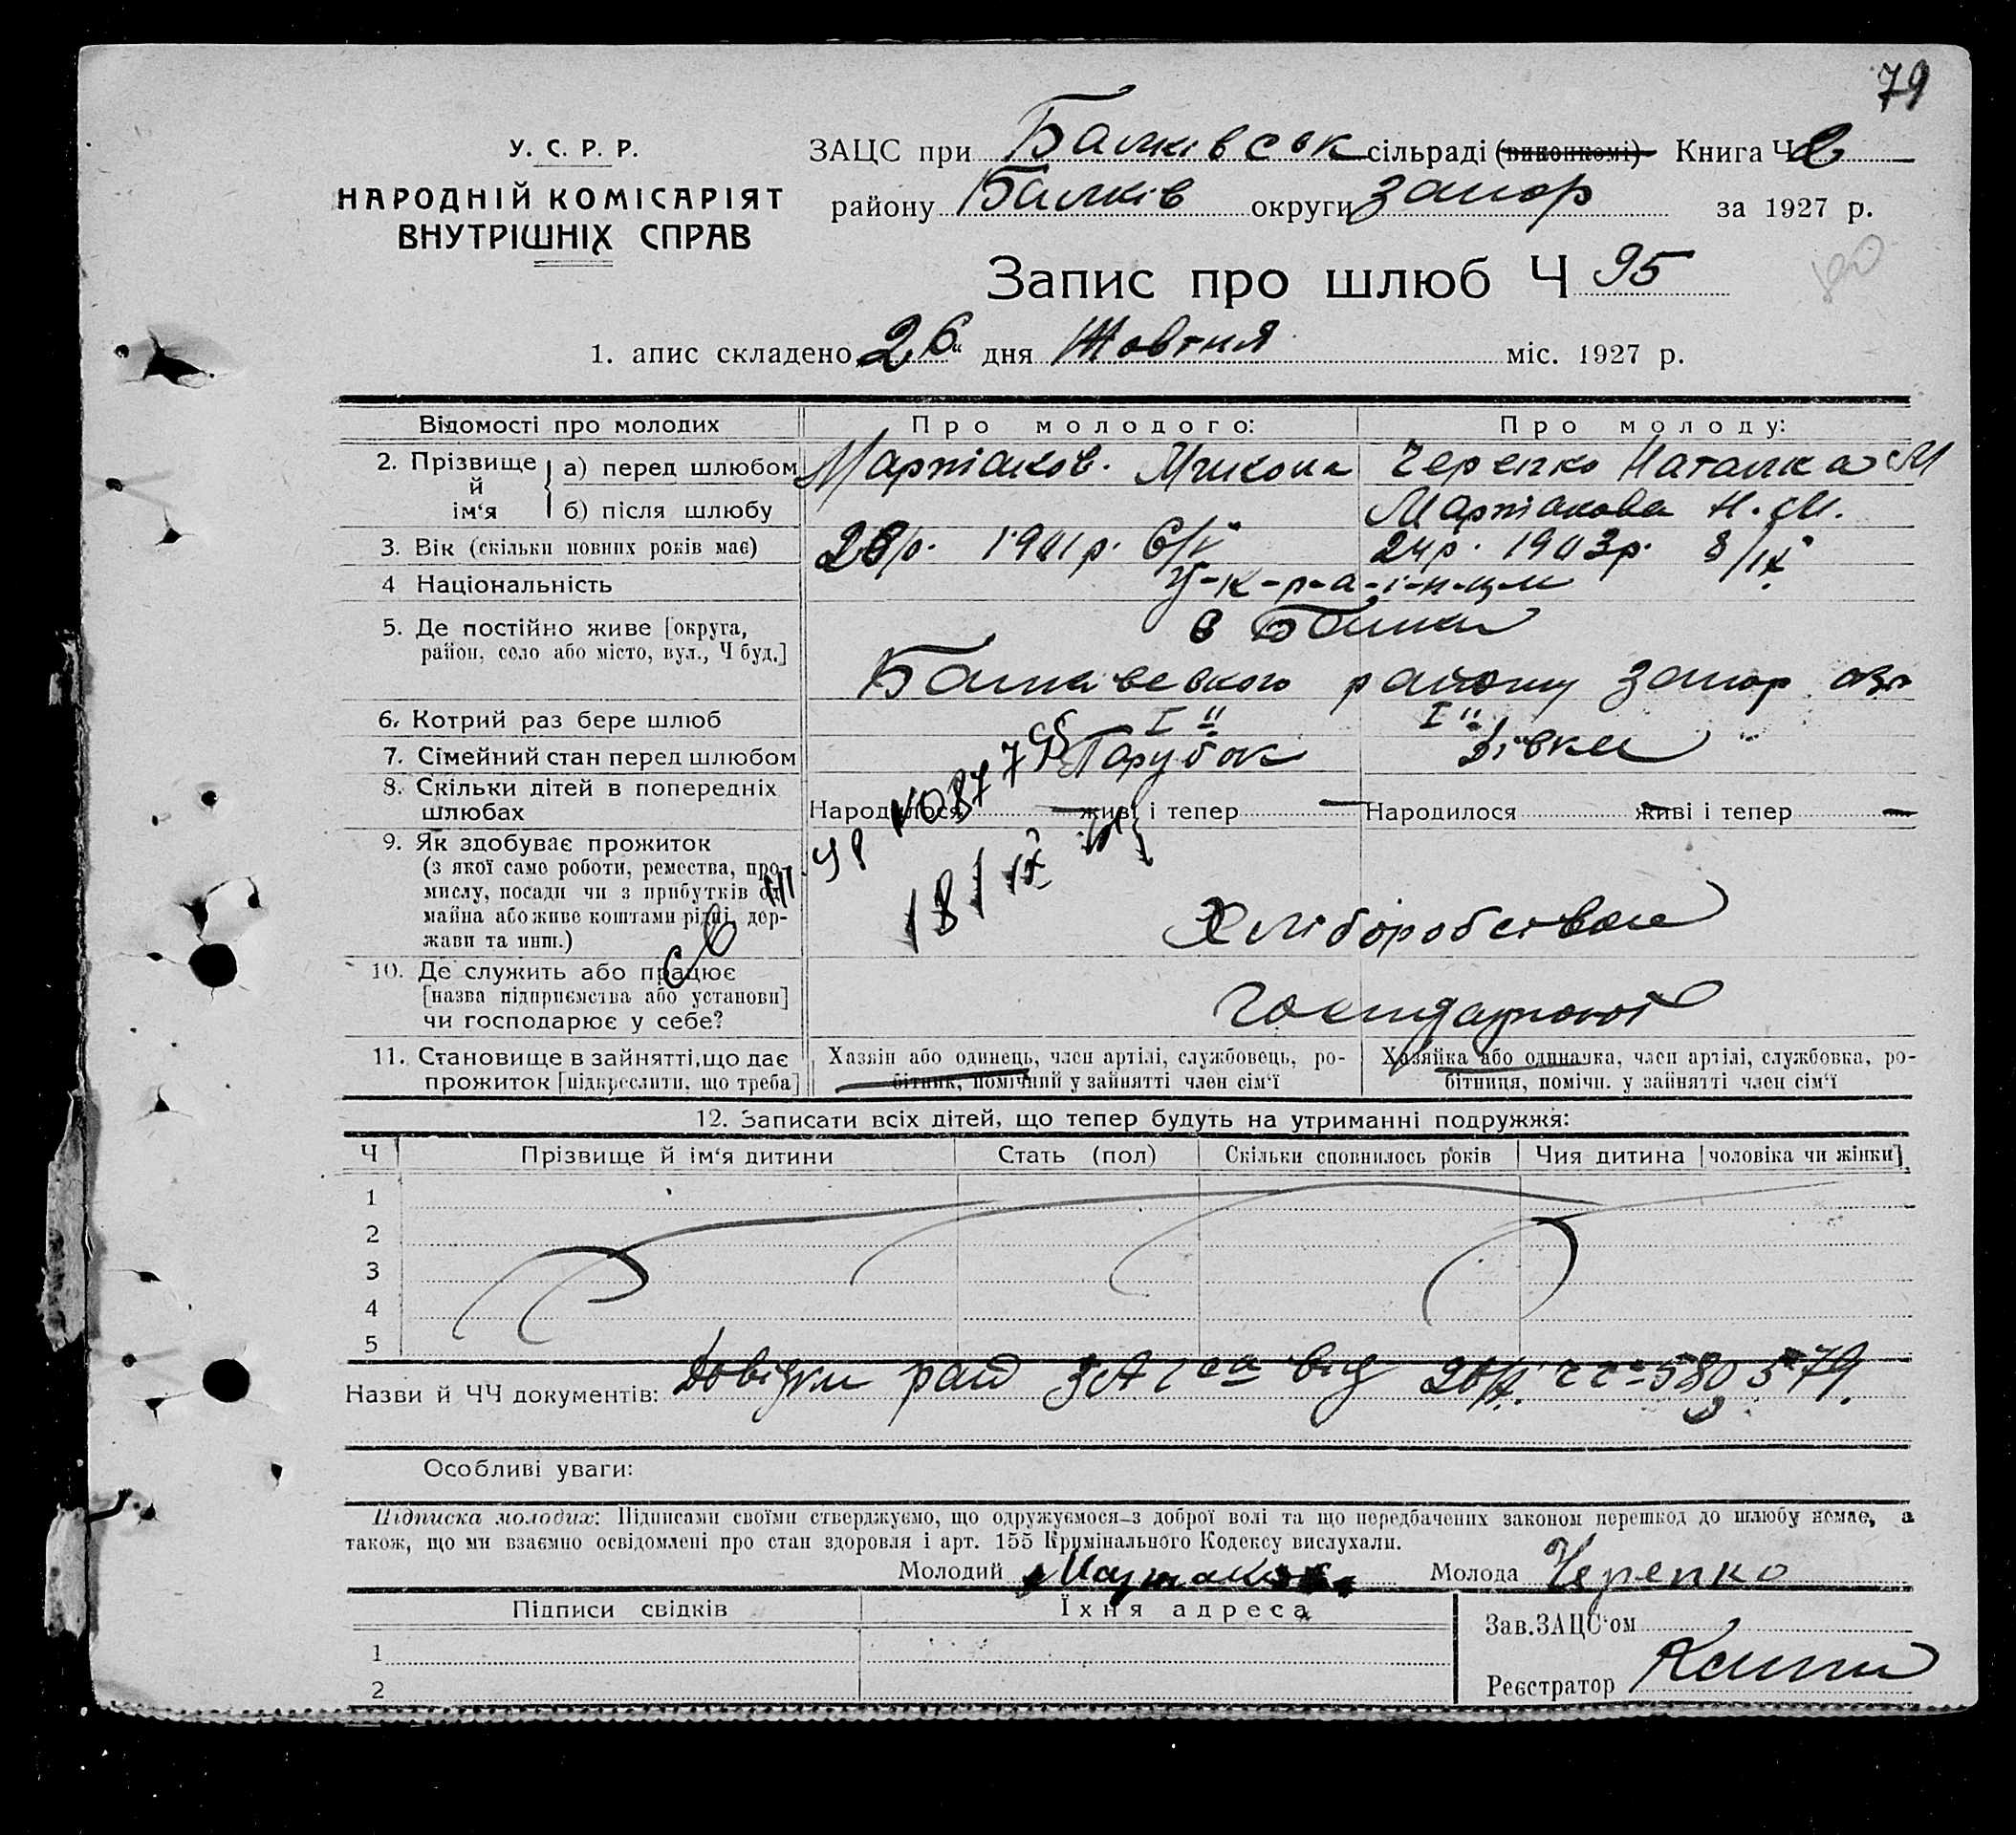 79
У. С. Р. Р.
НАРОДНІЙ КОМІСАРІЯТ
ВНУТРІШНІХ СПРАВ
ЗАЦС при Балківськ сільраді (виконкомі) Книга Ч 2
району Балків округи Запор за 1927 р.
Запис про шлюб Ч 95
1. апис складено „26“ дня Жовтня міс. 1927 р.
Відомості про молодих Про молодого: Про молоду:
2. Прізвище й ім‘я а) перед шлюбом Мартіаков. Микола Черепко Наталка М
б) після шлюбу Мартіакова Н. М.
3. Вік (скільки повних років має) 26р. 1901р. 6/V 24р. 1903р. 8/IX
4 Національність У-к-р-а-ї-н-ц-и
5. Де постійно живе [округа, в Балка
район, село або місто, вул., Ч буд.]
Балківського району Запор окр
6. Котрий раз бере шлюб I I
7. Сімейний стан перед шлюбом Парубок Дівка
8. Скільки дітей в попередніх
шлюбах Народилося — живі і тепер — Народилося живі і тепер —
9. Як здобуває прожиток
(з якої саме роботи, ремества, про-
мислу, посади чи з прибутків од
майна або живе коштами рідні, дер-
жави та инш.) Хліборобством
18/IX
10. Де служить або працює
[назва підприємства або установи]
чи господарює у себе?
11. Становище в зайнятті, що дає Хазяін або одинець, член артілі, службовець, ро- Хазяйка або одиначка, член артілі, службовка, ро-
прожиток [підкреслити, що треба] бітник, помічний у зайнятті член сім‘ї бітниця, помічн. у зайнятті член сім‘ї
12. Записати всіх дітей, що тепер будуть на утриманні подружжя:
Ч Прізвище й ім‘я дитини Стать (пол) Скільки сповнилось років Чия дитина [чоловіка чи жінки]
1
2
3
4
5
Назви й ЧЧ документів: Довідки рай ЗАГСа від 26/X. 580 579.
Особливі уваги:
Підписка молодих: Підписами своїми стверджуємо, що одружуємося з доброї волі та що передбачених законом перешкод до шлюбу немає, а
також, що ми взаємно освідомлені про стан здоровля і арт. 155 Кримінального Кодексу вислухали.
Молодий Молода Черепко
Підписи свідків Їхня адреса
Зав.ЗАЦС‘ом
1
Реєстратор
2